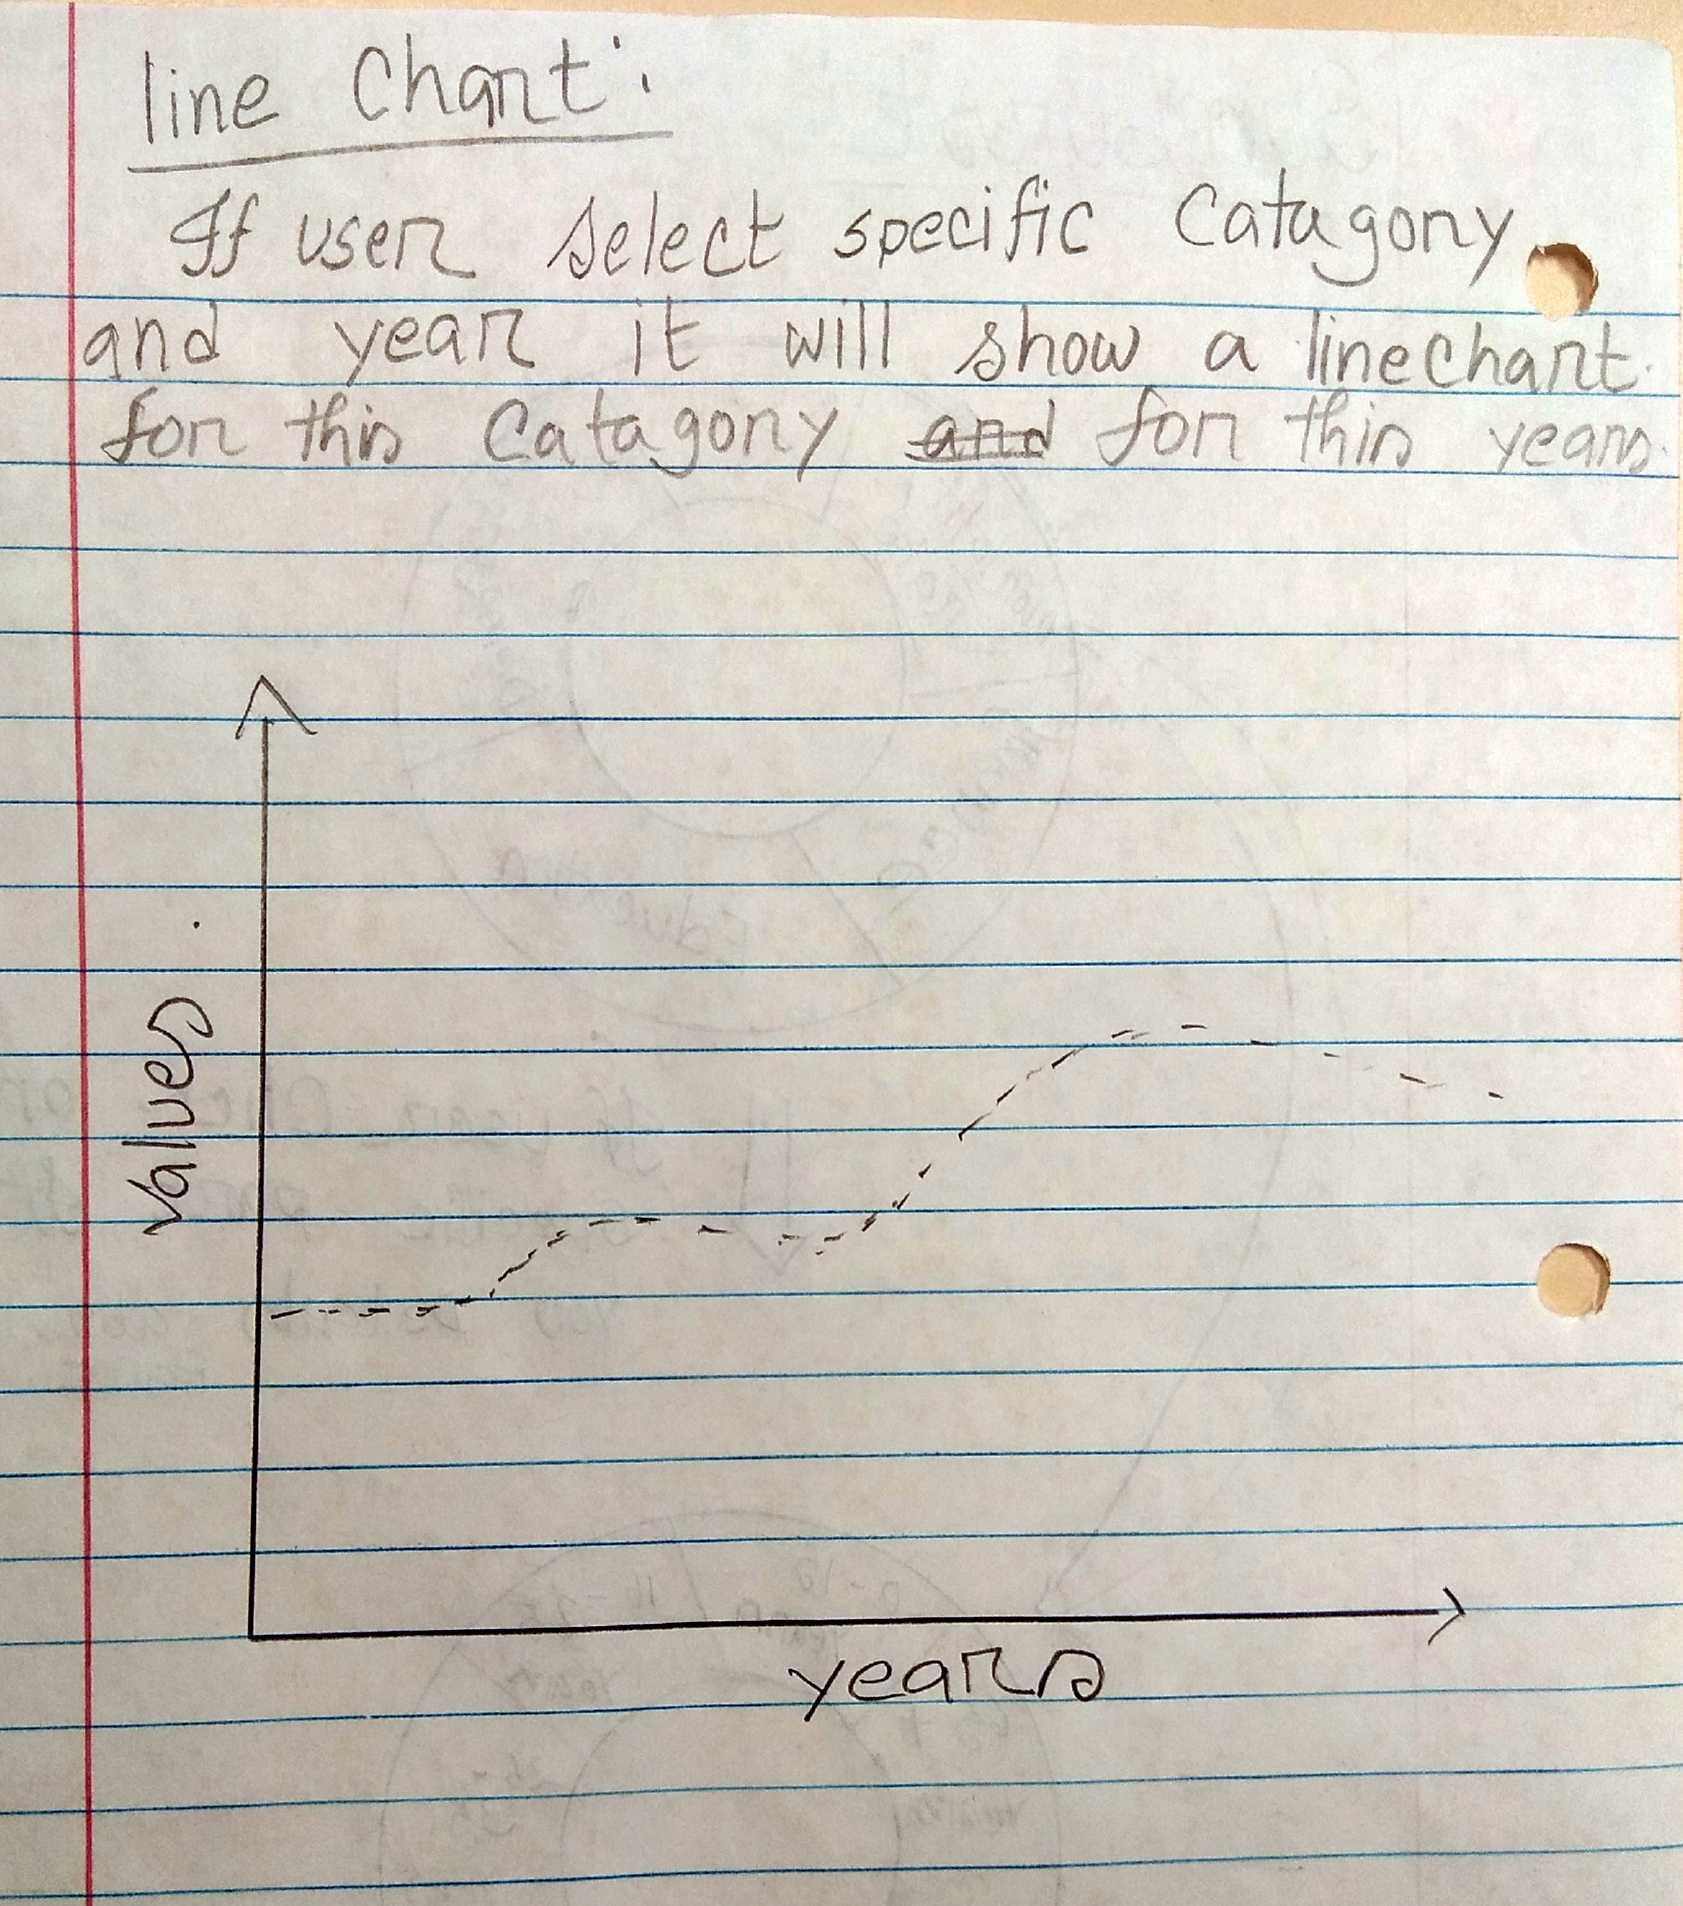 line Chart:
If user select specific Catagory
and year it will show a linechart
for this Catagory and for this years.
values
years